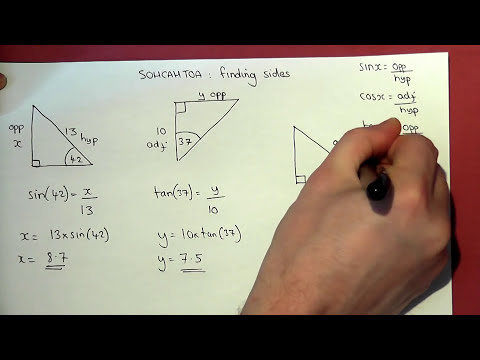 SOHCAHTOA : finding sides
sinx = opp
hyp
cosx = adj
hyp
opp
y opp
opp
x
13
hyp
42
10
adj
37
sin(42) = x
13
x = 13xsin(42)
x = 8.7
tan(37) = y
10
y = 10xtan(37)
y = 7.5